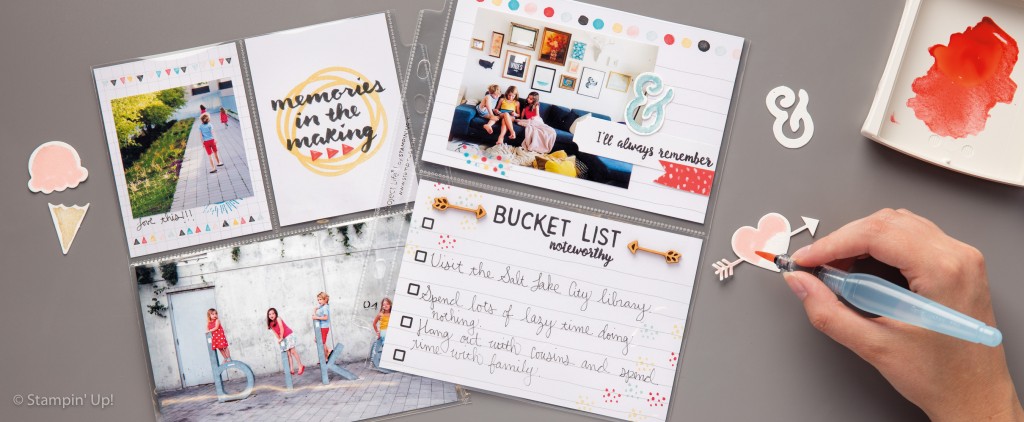 memories
in the
making
love this!!!
&
I'll always remember
&
BUCKET LIST
noteworthy
Visit the Salt Lake City library.
Spend lots of lazy time doing
nothing.
Hang out with cousins and spend
time with family.
b i k
© Stampin' Up!